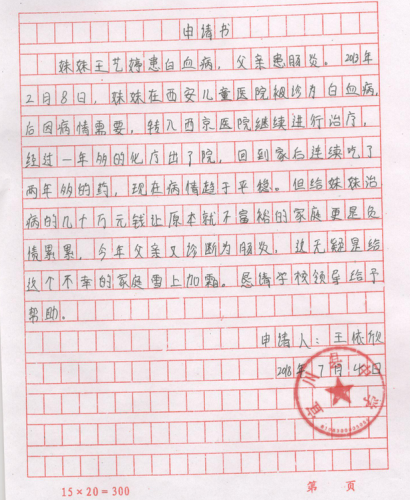 申请书
妹妹王艺婷患白血病，父亲患肠炎。2013年
2月8日，妹妹在西安儿童医院被诊为白血病，
后因病情需要，转入西京医院继续进行治疗，
经过一年多的化疗出了院，回到家后连续吃了
两年多的药，现在病情趋于平稳。但给妹妹治
病的几十万元钱让原本就不富裕的家庭更是负
债累累，今年父亲又诊断为肠炎，这无疑是给
这个不幸的家庭雪上加霜。恳请学校领导给予
帮助。
申请人：王依欣
2018年7月4日
宜川县
15×20=300
第 页